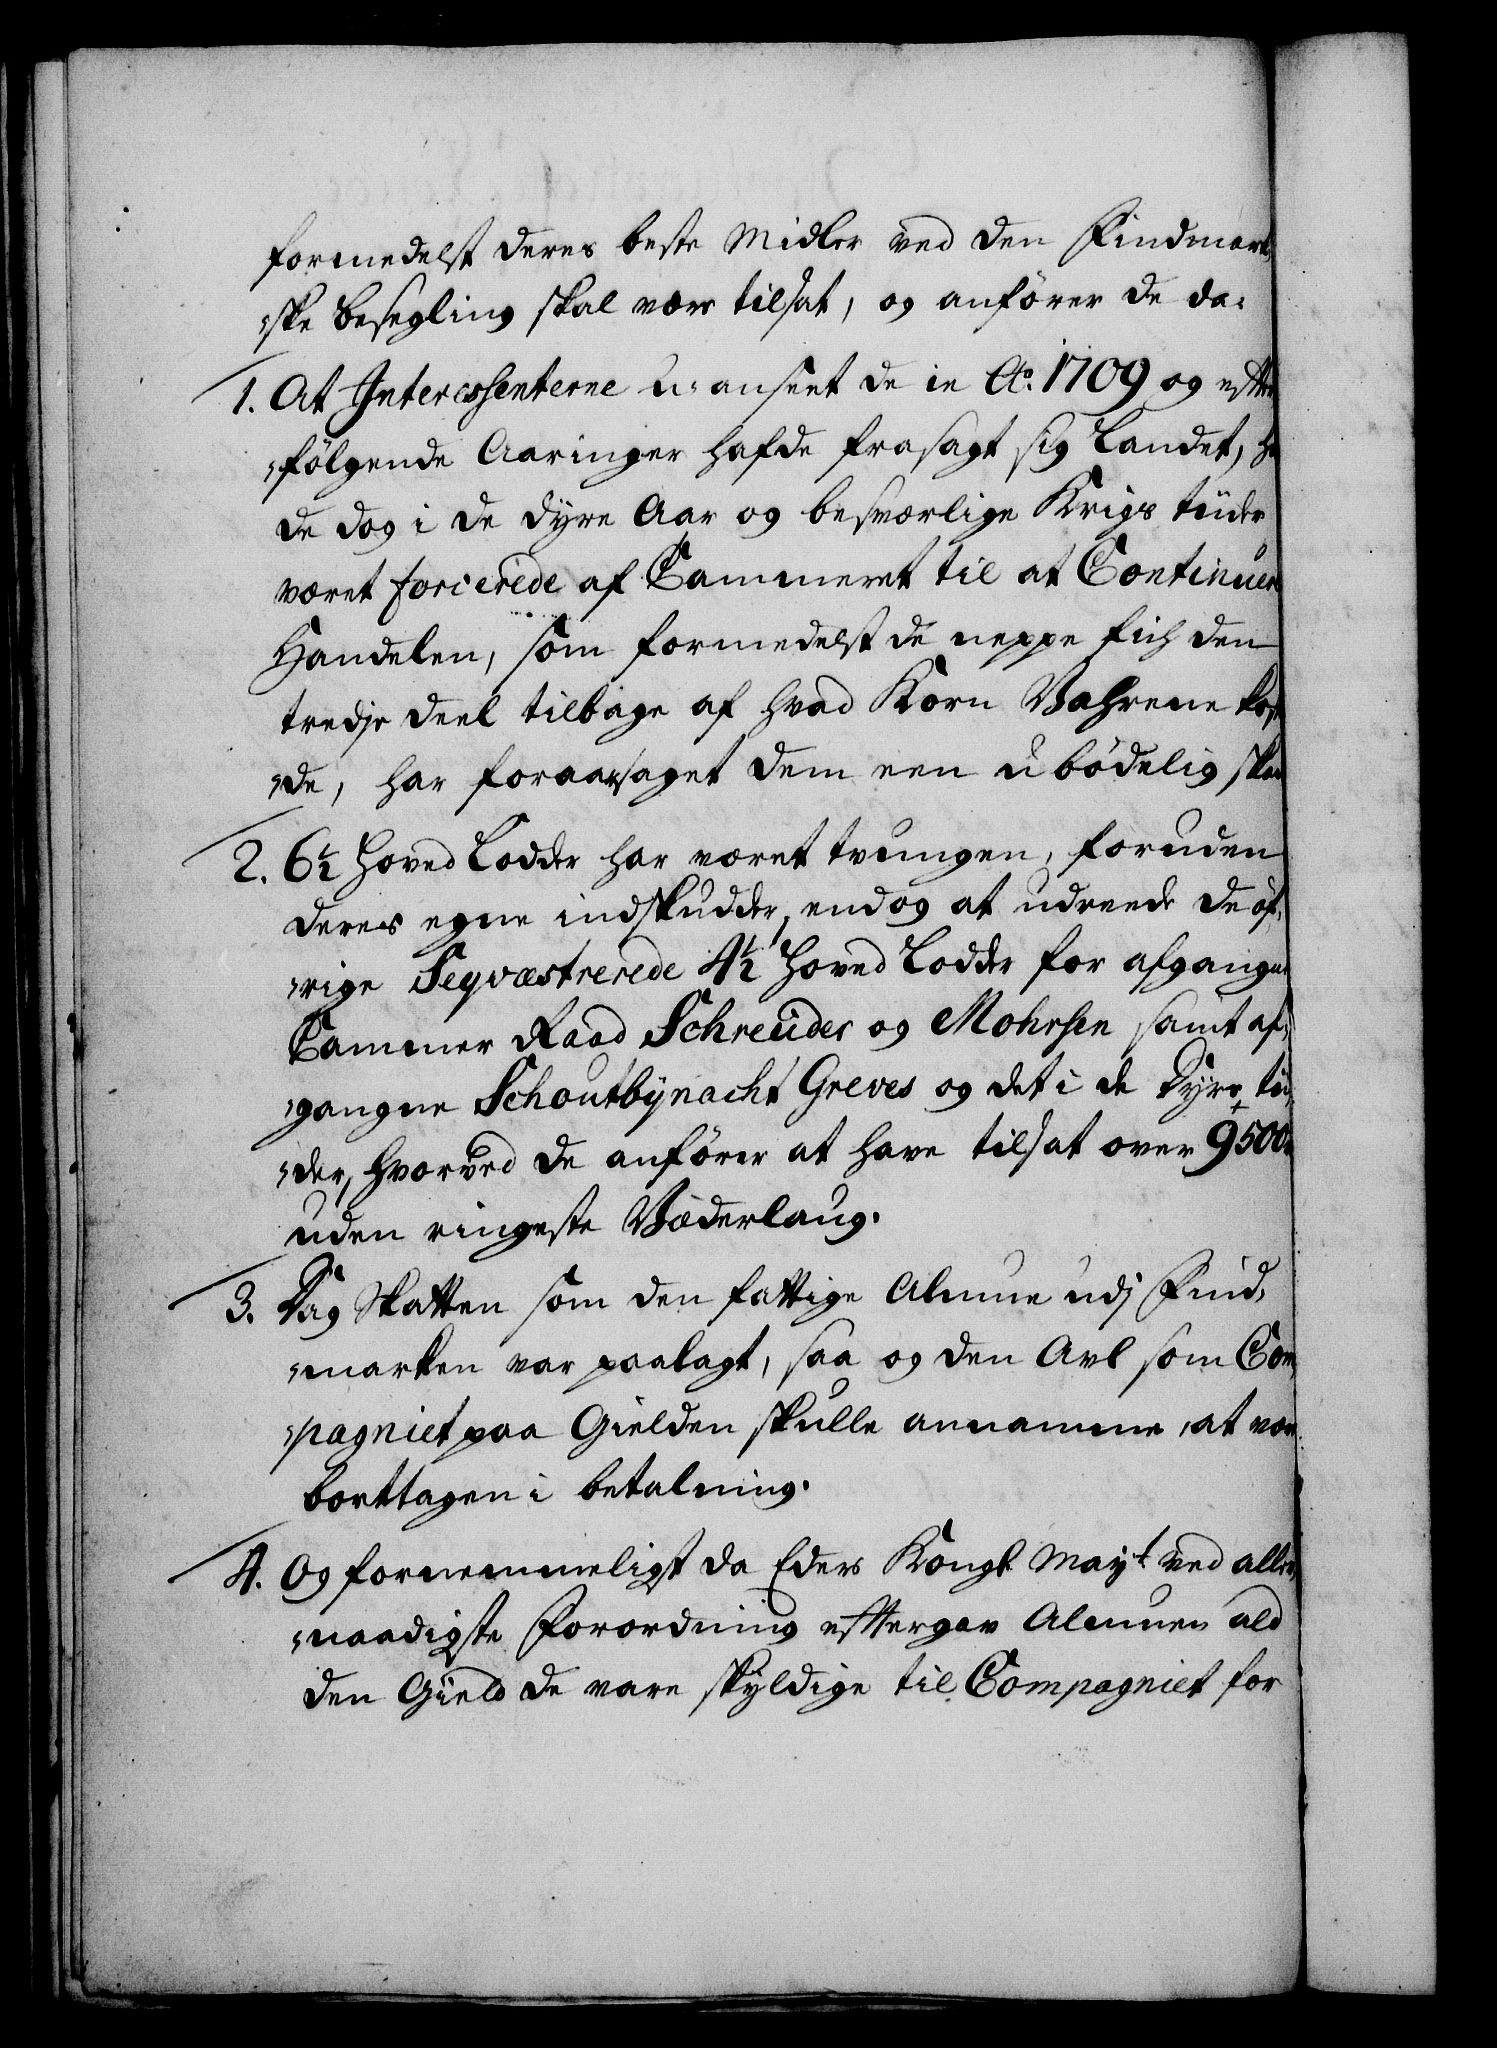 formedelst deres beste Midler ved den Findmark,
„ske Besegling skal være tilsat, og anfører de da:
1. At Interessenterne u-anseet de in Ao. 1709 og efter
„følgende Aaringer hafde frasagt sig Landet, ha
de dog i de dyre Aar og besværlige Krigs tiider
været forcerede af Cammeret til at Continuere
Handelen, som formedelst de neppe fich den
tredje deel tilbage af hvad Korn Vahrene kost
„de, har foraarsaget dem een ubødelig skad
2. 6½ Hoved Lodder har været tvungen, foruden
deres egne indskudder, endog at udreede de øf,
„rige Seqvæstrerede 4½ Hoved Lodder for afgangne
Cammer Raad Schreuder og Mohrsen samt af,
„gangne Schoutbynacht Greves og det i de Dyre tii,
„der, hvorved de anfører at have tilsat over 9500
uden ringeste Væderlaug.
3. Dag Skatten som den fattige Almue udj Find,
„marken var paalagt, saa og den Avl som Com,
„pagniet paa Gielden skulle annamme, at vær
borttagen i betalning.
4. Og fornemmeligst da Eders Kongl. Mayt. ved aller,
„naadigste Forordning eftergav Almuen ald
den Gield de vare skyldige til Compagniet for